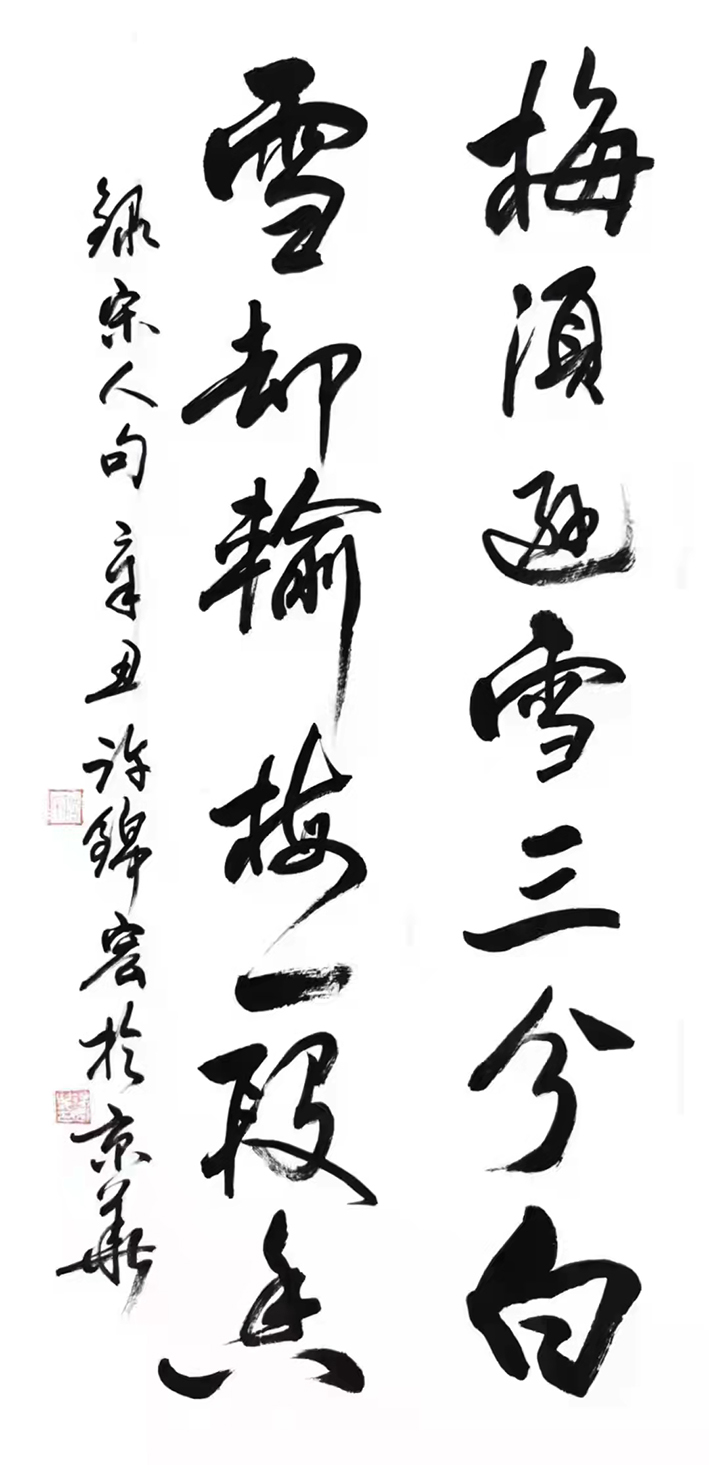 梅須遜雪三分白
雪却輸梅一段香
錄宋人句辛丑許錦宏於京華